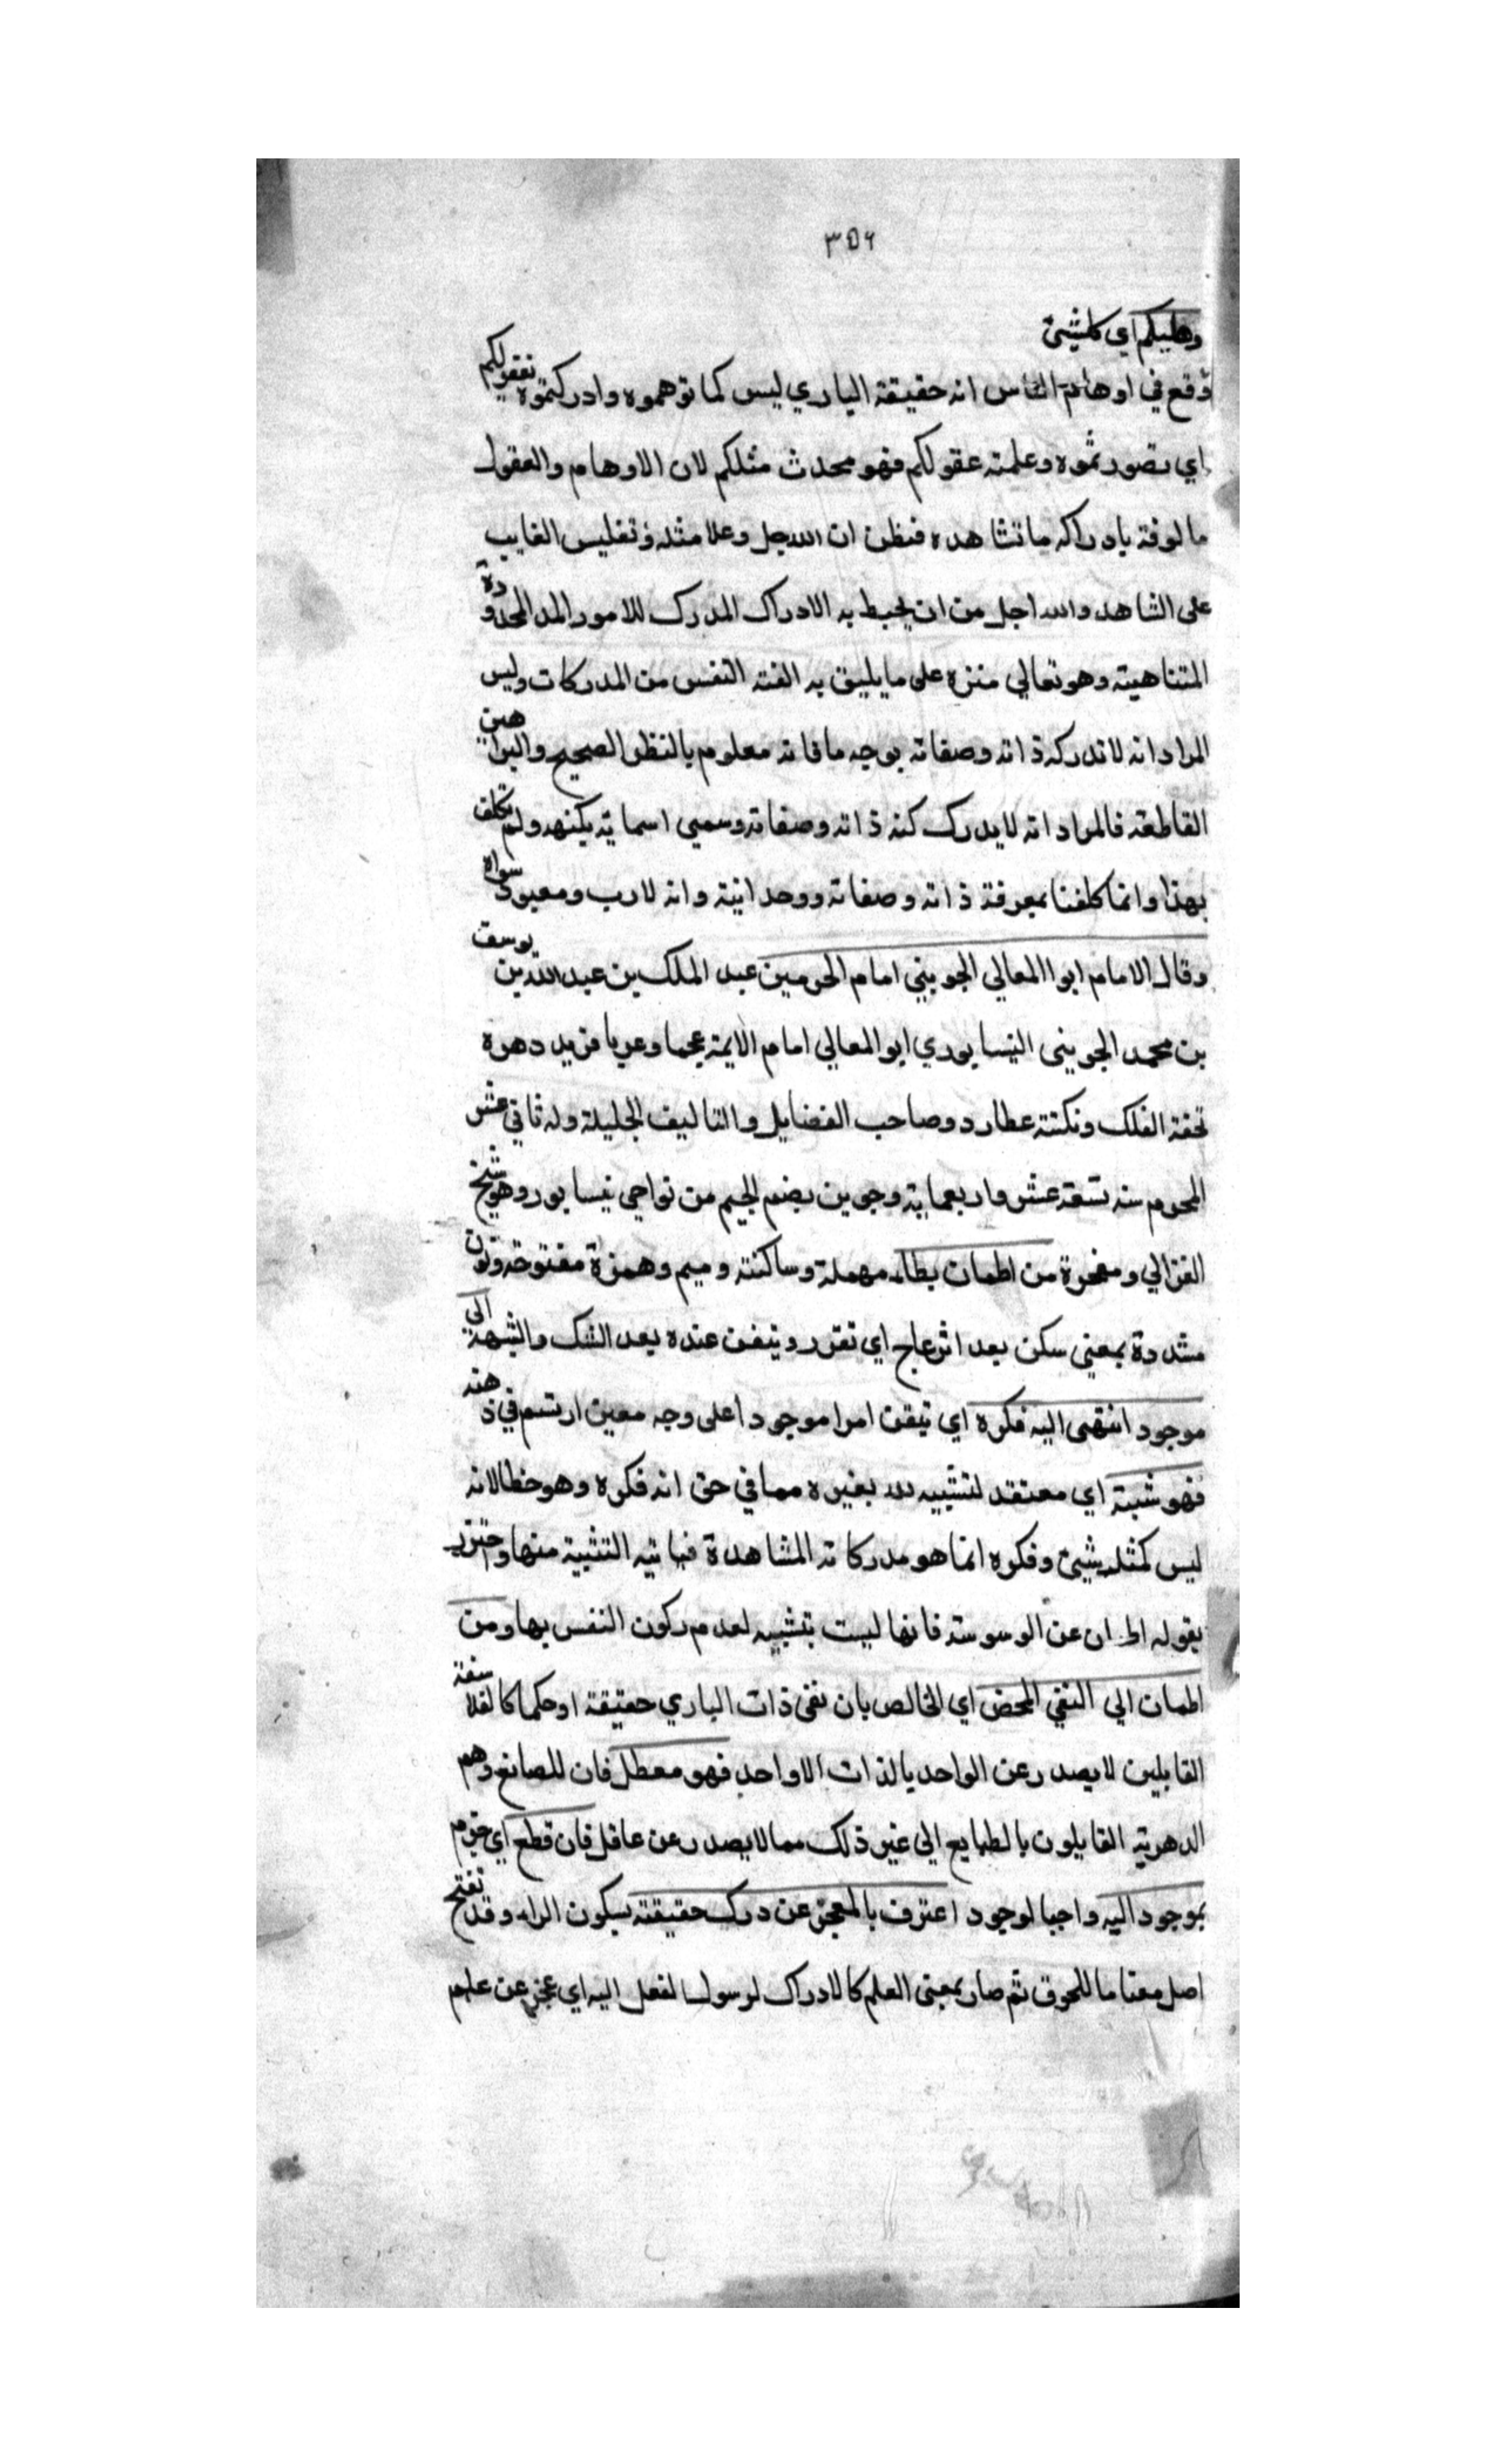 ٣٥٦
اي كلشيئ
وقع في اوهام الناس انه حقيقة الباري ليس كما توهموه وادركتموه بعقولكم
اي تصور تموه وعلمته عقولكم فهو محدث مثلكم لان الاوهام والعقول
مالوفة بادراكه ما تشاهده فتظن ان الله جل وعلا مثله وتقليس الغايب
على الشاهد والله اجل من ان يحيط به الادراك المدرك للامور المحدودة
المتناهية وهو تعالي منزه على ما يليق به الفته النفس من المدركات وليس
المراد انه لا تدركه ذاته وصفاته بوجه ما فانه معلوم بالنظر الصحيح والبراهين
القاطعة فالمراد انه لا يدرك كنه ذاته وصفاته وسمي اسمايه بكنهه ولم نكلف
بهذا وانما كلفنا بمعرفة ذاته وصفاته ووحدانية وانه لا رب ومعبود سواه
وقال الامام ابوا المعالي الجويني امام الحرمين عبد الملك بن عبد الله بن يوسف
بن محمد الجويني النيسابوري ابو المعالي امام الايمة عجما وعربا فريد دهره
تحفة الفلك ونكتة عطارد وصاحب الفضايل والتاليف الجليلة ولد ثاني عشر
المحرم سنه تسعة عشر واربعماية وجوين بضم الجيم من نواحي نيسابور وهو شيخ
الغزالي ومفخرة من اطمان بطاء مهملة وساكنة وميم وهمزة مفتوحة ونون
مشددة بمعني سكن بعد انزعاج اي تقرر وتيقن عنده بعد الشك والشبهة الى
موجود انتهى اليه فكره اي تيقن امرا موجودا على وجه معين ارتسم في ذهنه
فهو شبته اي معتقد لتشبيه لله بغيره مما في حق انه فكره وهو خطا لانه
ليس كمثله شيئ وفكره انما هو مدركاته المشاهدة فياتيه التشبية منها
بقوله اطمان عن الوسوسة فانها ليست بتشبيه لعدم ركون النفس بها ومن
اطمان الي النفي المحض اي الخالص بان نفى ذات الباري حقيقة او حكما كالفلاسفة
القايلين لا يصدر عن الواحد بالذات الا واحد فهو معطل فان للصانع وهم
الدهرية القايلون بالطبايع الي غير ذلك مما لا يصدر عن عاقل فان قطع اي جزم
بموجود اليه واجبا لوجود اعترف بالمعجز عن درك حقيقته بسكون الراء وقد تفتح
اصل معنا ما للحوق ثم صار بمعنى العلم كالادراك لرسولنا لفعل اليه اي عجز عن علم